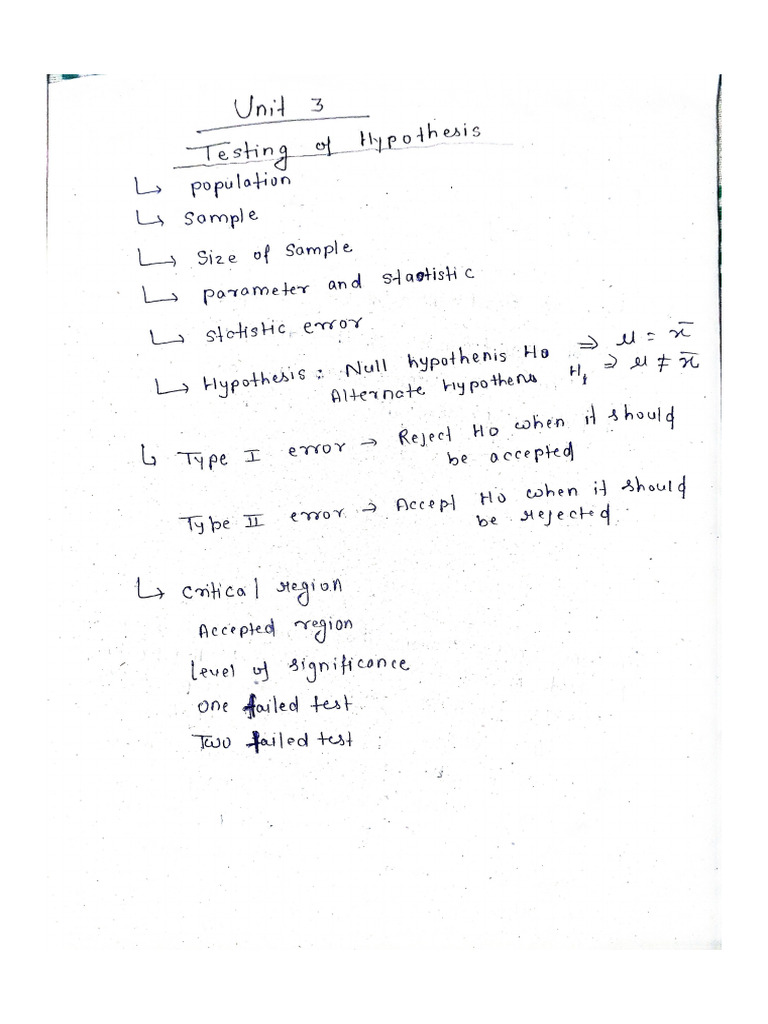 Unit 3
Testing of Hypothesis
↳ population
↳ Sample
↳ Size of Sample
↳ parameter and Stastistic
↳ Statistic error
↳ Hypothesis : Null hypothenis H0 ⇒ μ = x̄
Alternate Hypothens H1 ⇒ μ ≠ x̄
↳ Type I error → Reject H0 when it should
be accepted
Type II error → Accept H0 when it should
be rejected
↳ Critical region
Accepted region
level of significance
one failed test
Two failed test